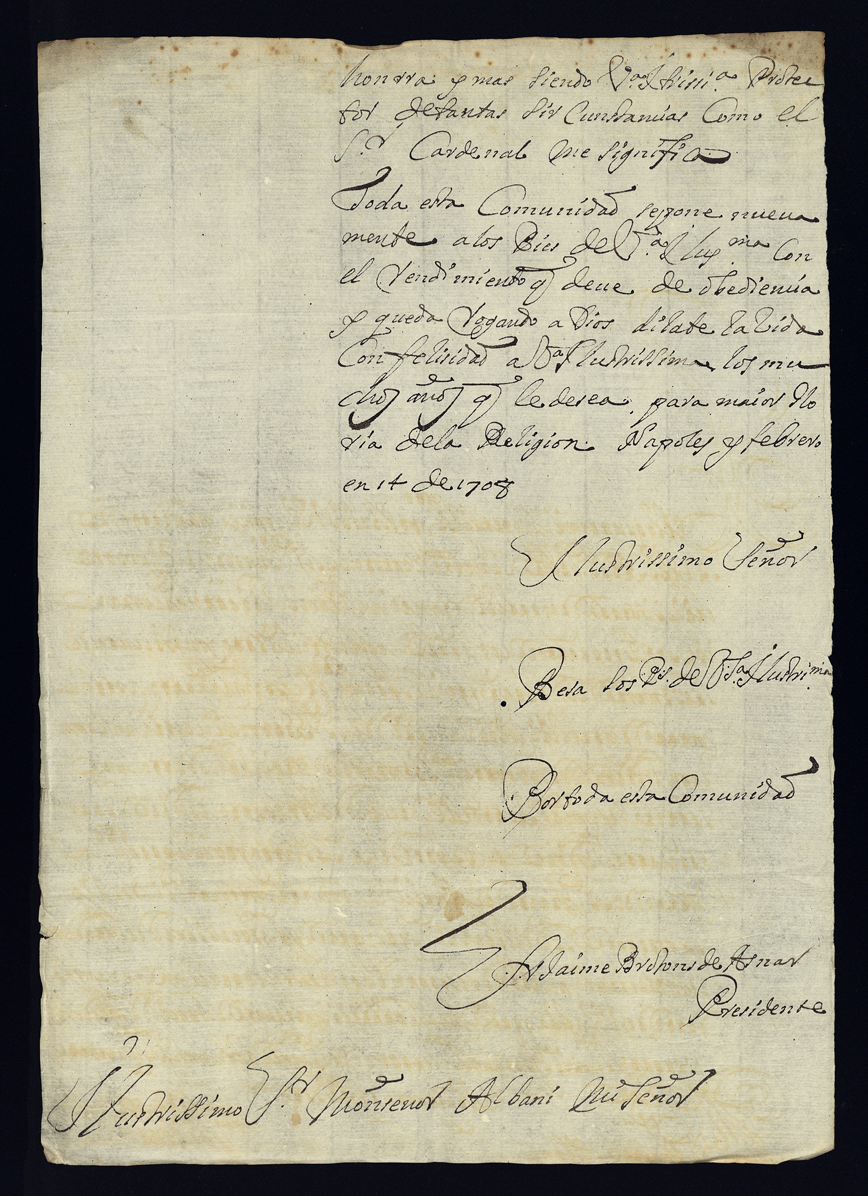 honrra y mas siendo V.a Ilssi.a Protec
tor de tantas sir Cunstancias Como el
S.r Cardenal me significa
Toda esta Comunidad se pone nueva
mente a los Pies de V.a Ilus.ma Con
el Rendimiento q deve de obediencia
y queda Rogando a Dios dilate la Vida
Con felisidad a V.a Ilustrissima los mu
chos años q le desea para maior Glo
ria de la Religion Napoles y febrero
en 14 de 1708
Ilustrissimo Señor
Besa los Ps. de V.Sa. Ilustri.ma
Por toda esta Comunidad
fr Jaime Brotons de Asnar
Presidente
Ilustrissimo S.r Monseñor Albani Mi Señor